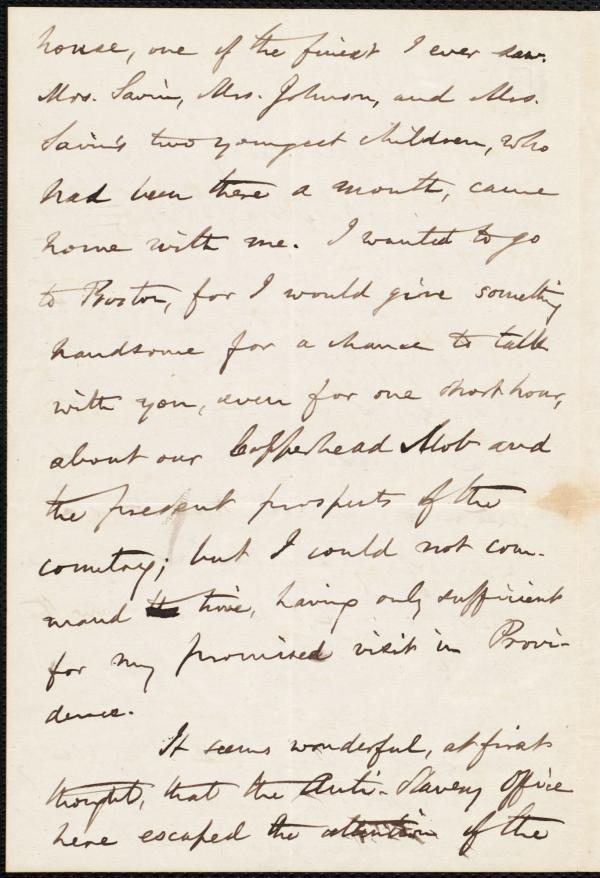 house, one of the finest I ever saw.
Mrs. Savin, Mrs. Johnson, and Mrs.
Savin's two youngest children, who
had been there a month, came
home with me. I wanted to go
to Boston, for I would give something
handsome for a chance to talk
with you, even for one short hour,
about our Copperhead Mob and
the present prospects of the
country; but I could not com-
mand time, having only sufficient
for my promised visit in Provi-
dence.
It seems wonderful, at first
thought, that the Anti-Slavery Office
here escaped the attention of the